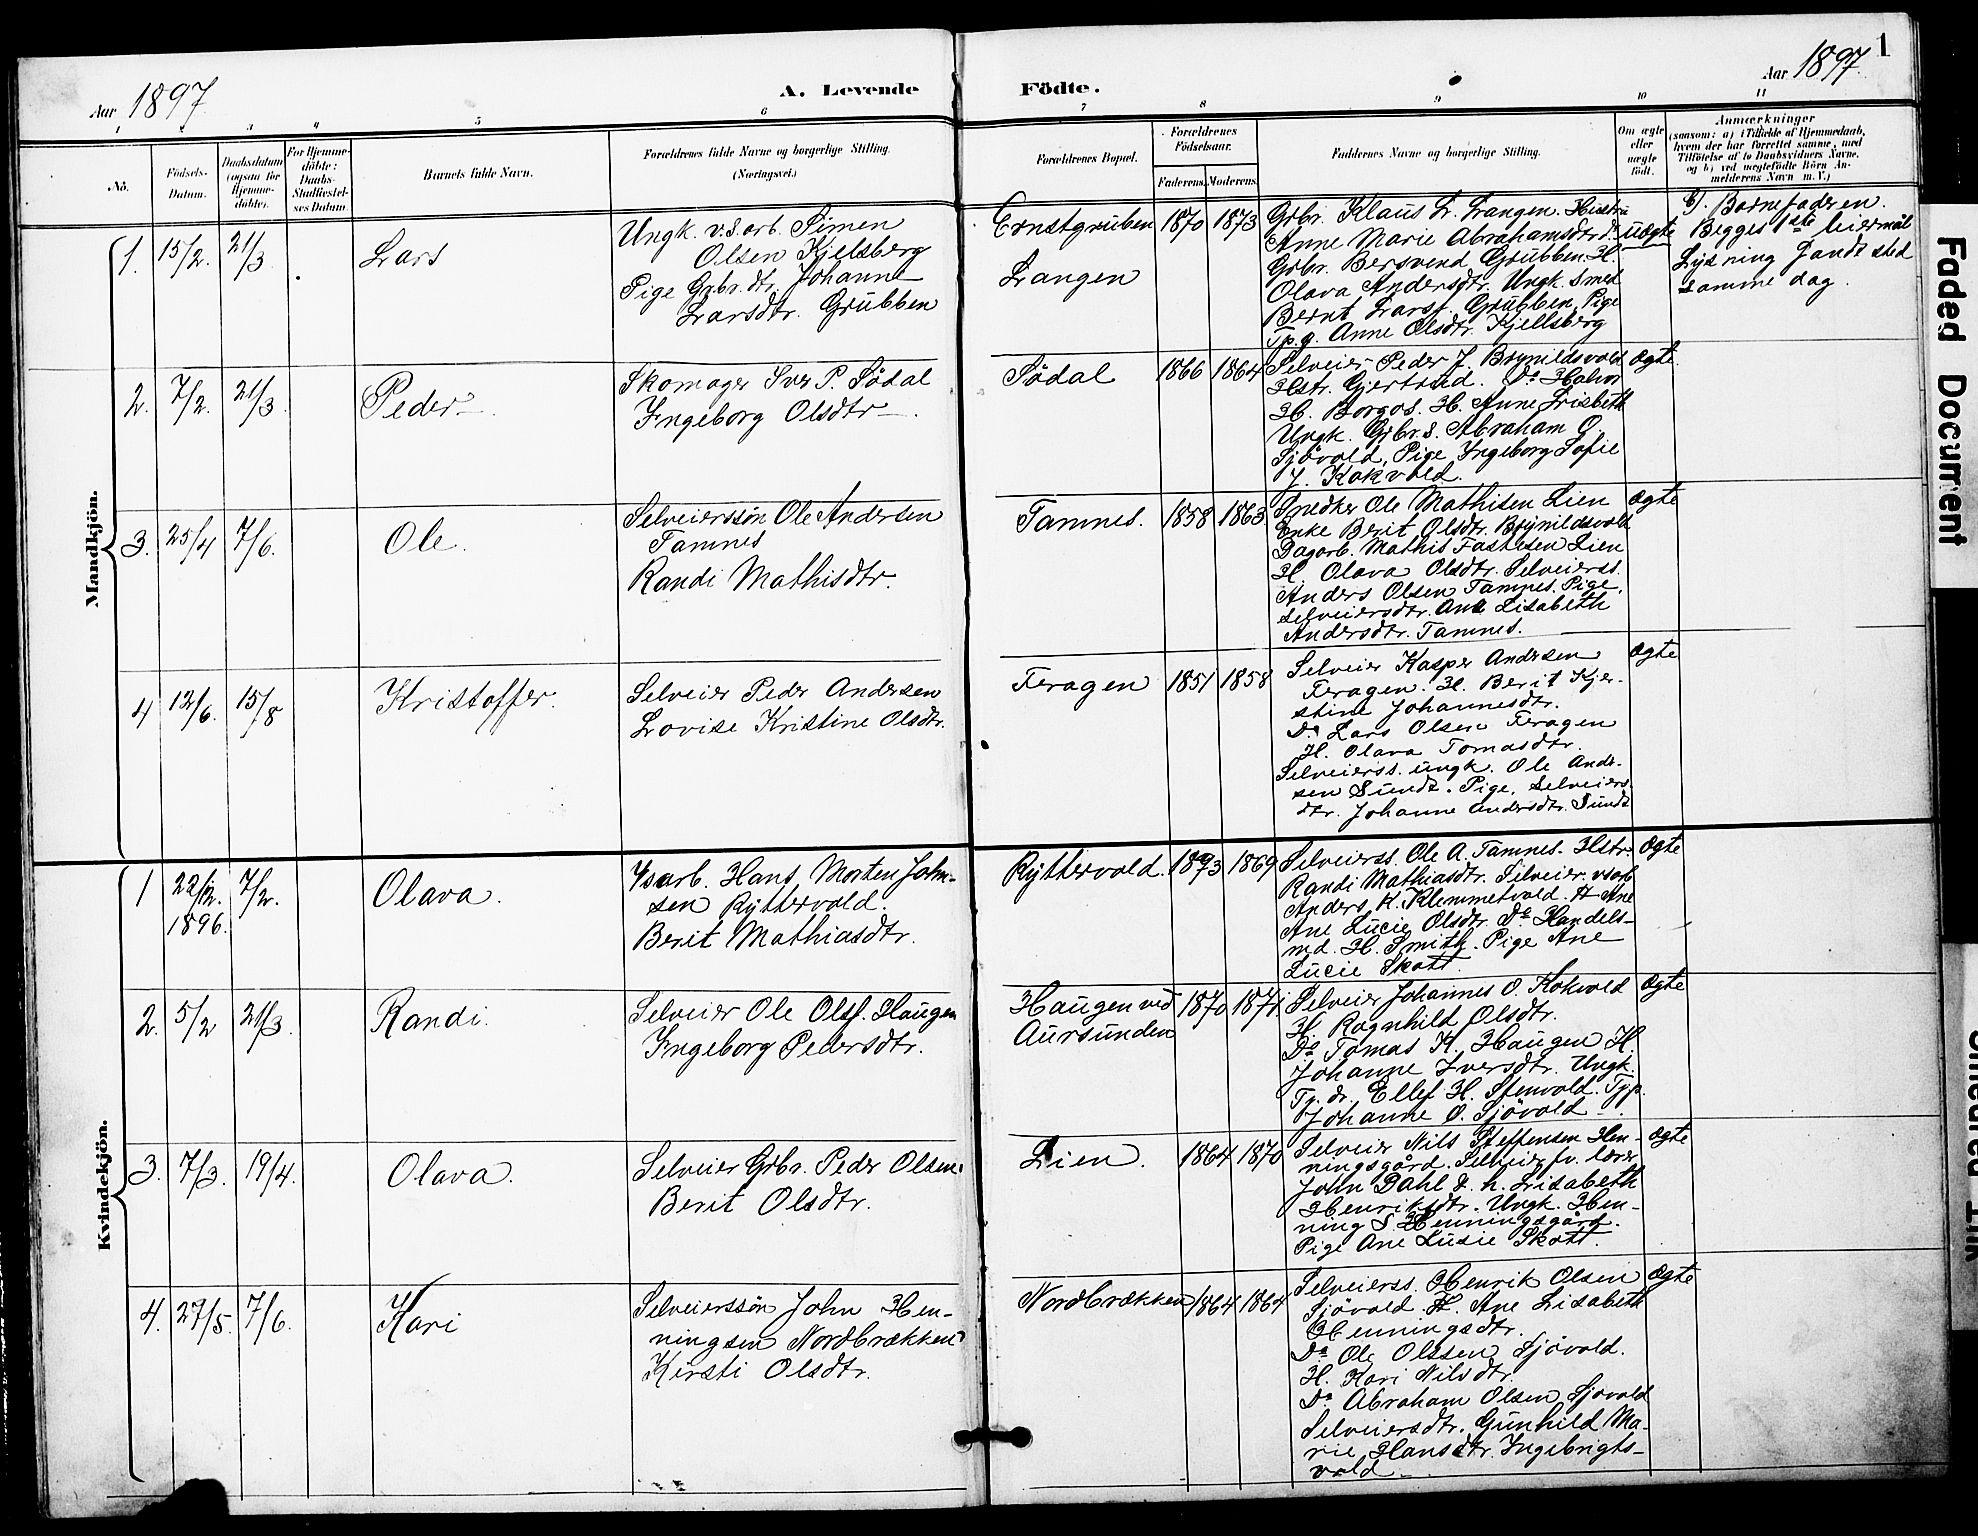 Aar 1897
A. Levende
Födte.
Aar 1897.
1
1 2 3 4 5 6 7 8 9 10 11
No.
Födsels-
Datum.
Daabsdatum
(ogsaa for
Hjemme-
döbte).
For Hjemme-
döbte:
Daabs-
Stadfæstel-
ses Datum.
Barnets fulde Navn.
Forældrenes fulde Navne og borgerlige Stilling.
(Næringsvei.)
Forældrenes Bopæl.
Forældrenes
Födselsaar.
Faderens. Moderens.
Faddernes Navne og borgerlige Stilling.
Om ægte
eller
uægte
født.
Anmærkninger
(saasom: a) i Tilfælde af Hjemmedaab,
hvem der har forrettet samme, med
Tilföielse af to Daabsvidners Navne,
og b) ved uægtefödte Börn An-
melderens Navn m. V.)
Mandkjön.
1. 15/2. 21/3 Lars
Ungk. v.s.arb. Simen
Olsen Kjellsberg
Pige Grbr.dtr. Johanne
Larsdtr. Grubben
Ernstgruben
Langen
1870 1873
Grbr. Klaus L. Langen. Hustru
Anne Marie Abrahamsdtr d.
Grbr. Bersvend Grubben. H.
Olava Andersdtr. Ungk. Smed
Bernt Larss. Grubben, Pige
Tp.g. Anne Olsdtr. Kjellsberg
uægte
G. Barnefaderen.
Begges 1ste leiermål
Lysning fandt sted
samme dag.
2. 7/2. 21/3. Peder
Skomager Iver P. Södal
Ingeborg Olsdtr
Södal 1866 1864
Selveier Peder J. Brynildsvold
Hstr. Gjertrud. Do Halvor
H. Borgos. H. Anne Lisbeth
Ungk. Grbr.s. Abraham O.
Sjövold, Pige Ingeborg Sofie
J. Kokvold.
Ægte
3. 25/4 7/6. Ole.
Selveierssön Ole Andersen
Tamnes
Randi Mathisdtr.
Tamnes. 1858 1863.
Snedker Ole Mathisen Lien
Enke Berit Olsdtr. Brynildsvold
Dagarb. Mathis Fastesen Lien
H. Olava Olsdtr. Selveierss.
Anders Olsen Tamnes. Pige,
selveiersdtr. Ane Lisabeth
Andersdtr. Tamnes.
Ægte
4 12/6. 15/8 Kristoffer.
Selveier Peder Andersen
Lovise Kristine Olsdtr.
Feragen 1851 1858
Selveier Kasper Andersen
Feragen. H. Berit Kjer-
stine Johannesdtr.
Do Lars Olsen Feragen
H. Olava Tomasdtr.
Selveierss. ungk. Ole Andr-
sen Sundt. Pige, selveiers
dtr. Johanne Andersdtr. Sundt
Ægte
Kvindekjön.
1 22/12. 7/2. Olava.
1896.
Vsarb. Hans Morten John-
sen Ryttervold.
Berit Mathiasdtr.
Ryttervold. 1893 1869
Selveierss. Ole A. Tamnes. Hstr.
Randi Mathiasdtr. Selveier vsarb
Anders K. Klemmetvold. H Ane
Ane Lucie Olsdtr. Do Handels-
md. H. Smith. Pige Ane
Lucie Skott.
Ægte
2. 5/2 21/3. Randi.
Selveier Ole Olss. Haugen
Ingeborg Pedersdtr.
Haugen ved
Aursunden
1870 1871
Selveier Johannes O. Kokvold
H. Ragnhild Olsdtr.
Do Tomas K. Haugen H.
Johanne Iversdtr. Ungk.
Ty.dr. Ellef H. Stenvold. Typ.
Johanne O. Sjövold
Ægte
3. 7/3. 19/4. Olava.
Selveier Grbr. Peder Olsen.
Berit Olsdtr.
Lien. 1864 1870
Selveier Nils Steffensen Hen-
ningsgård. Selveier fv. lærer
John Dahl & h. Lisabeth
Henriksdtr. Ungk. Hen-
ning S Henningsgård.
Pige Ane Lusie Skott.
Ægte
4. 27/5. 7/6. Kari
Selveierssön John Hen-
ningsen Nordbrækken
Kirsti Olsdtr.
Nordbrækken 1864 1864
Selveierss. Henrik Olsen
Sjövold. H. Ane Lisabeth
Henningsdtr.
Do Ole Olssen Sjövold.
H. Kari Nilsdtr.
Do Abraham Olsen Sjövold
Selveiersdtr. Gunhild Ma-
rie Hansdtr. Ingebrigts-
vold
Ægte
Faded Document
Smeared Ink